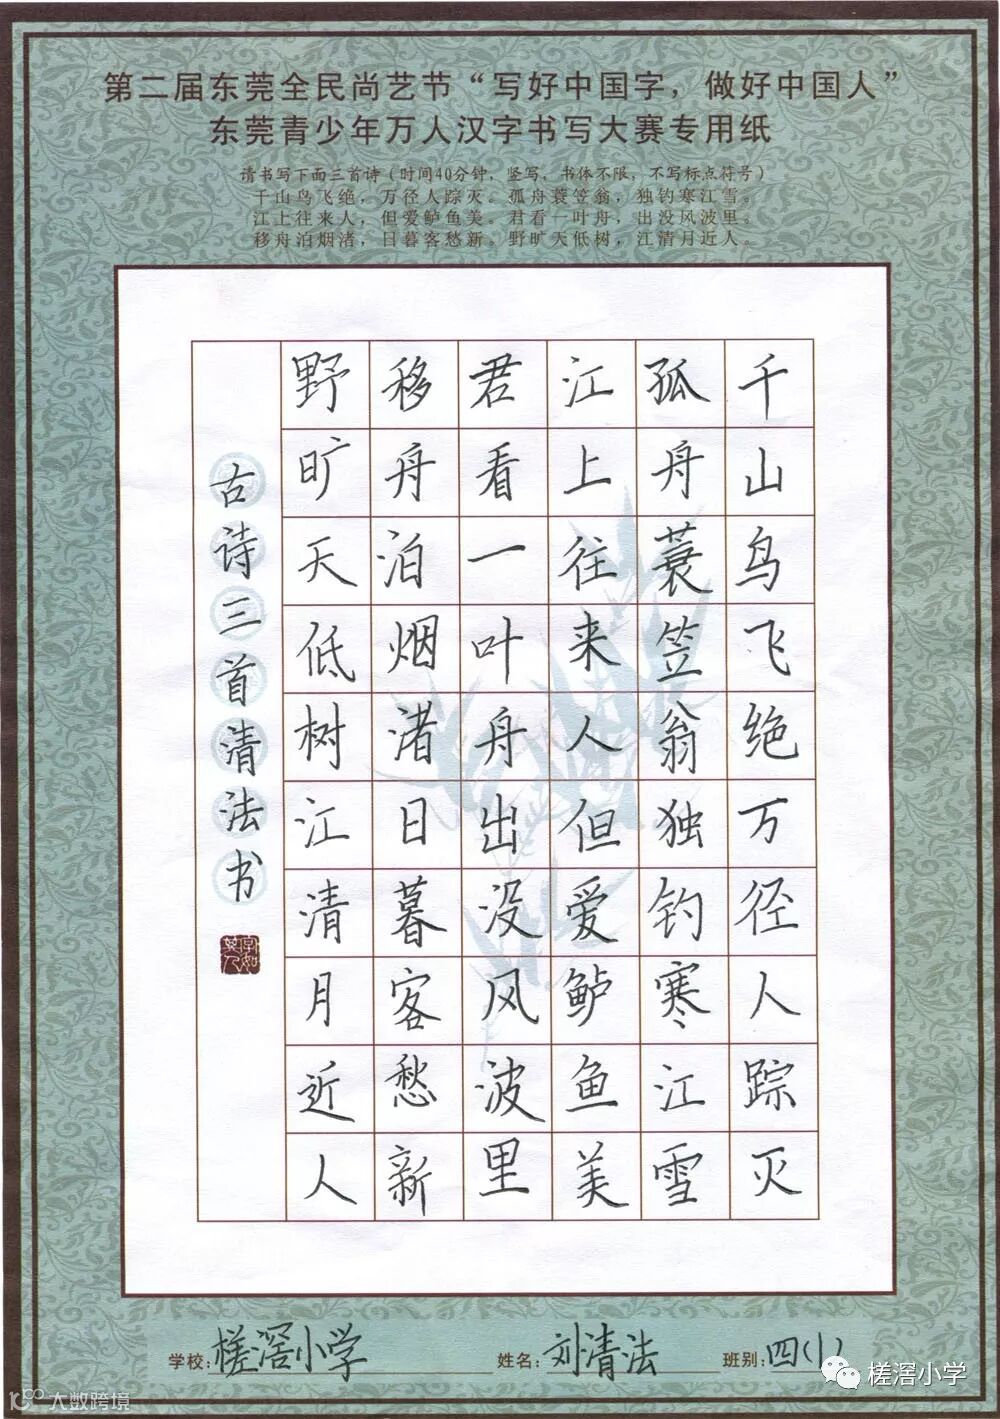 第二届东莞全民尚艺节“写好中国字，做好中国人”
东莞青少年万人汉字书写大赛专用纸
请书写下面三首诗（时间40分钟，竖写，书体不限，不写标点符号）
千山鸟飞绝，万径人踪灭。孤舟蓑笠翁，独钓寒江雪。
江上往来人，但爱鲈鱼美。君看一叶舟，出没风波里。
移舟泊烟渚，日暮客愁新。野旷天低树，江清月近人。
千山鸟飞绝万径人踪灭
孤舟蓑笠翁独钓寒江雪
江上往来人但爱鲈鱼美
君看一叶舟出没风波里
移舟泊烟渚日暮客愁新
野旷天低树江清月近人
古诗三首清法书
字如其人
学校：槎滘小学
姓名：刘清法
班别：四(1)
槎滘小学
大数跨境